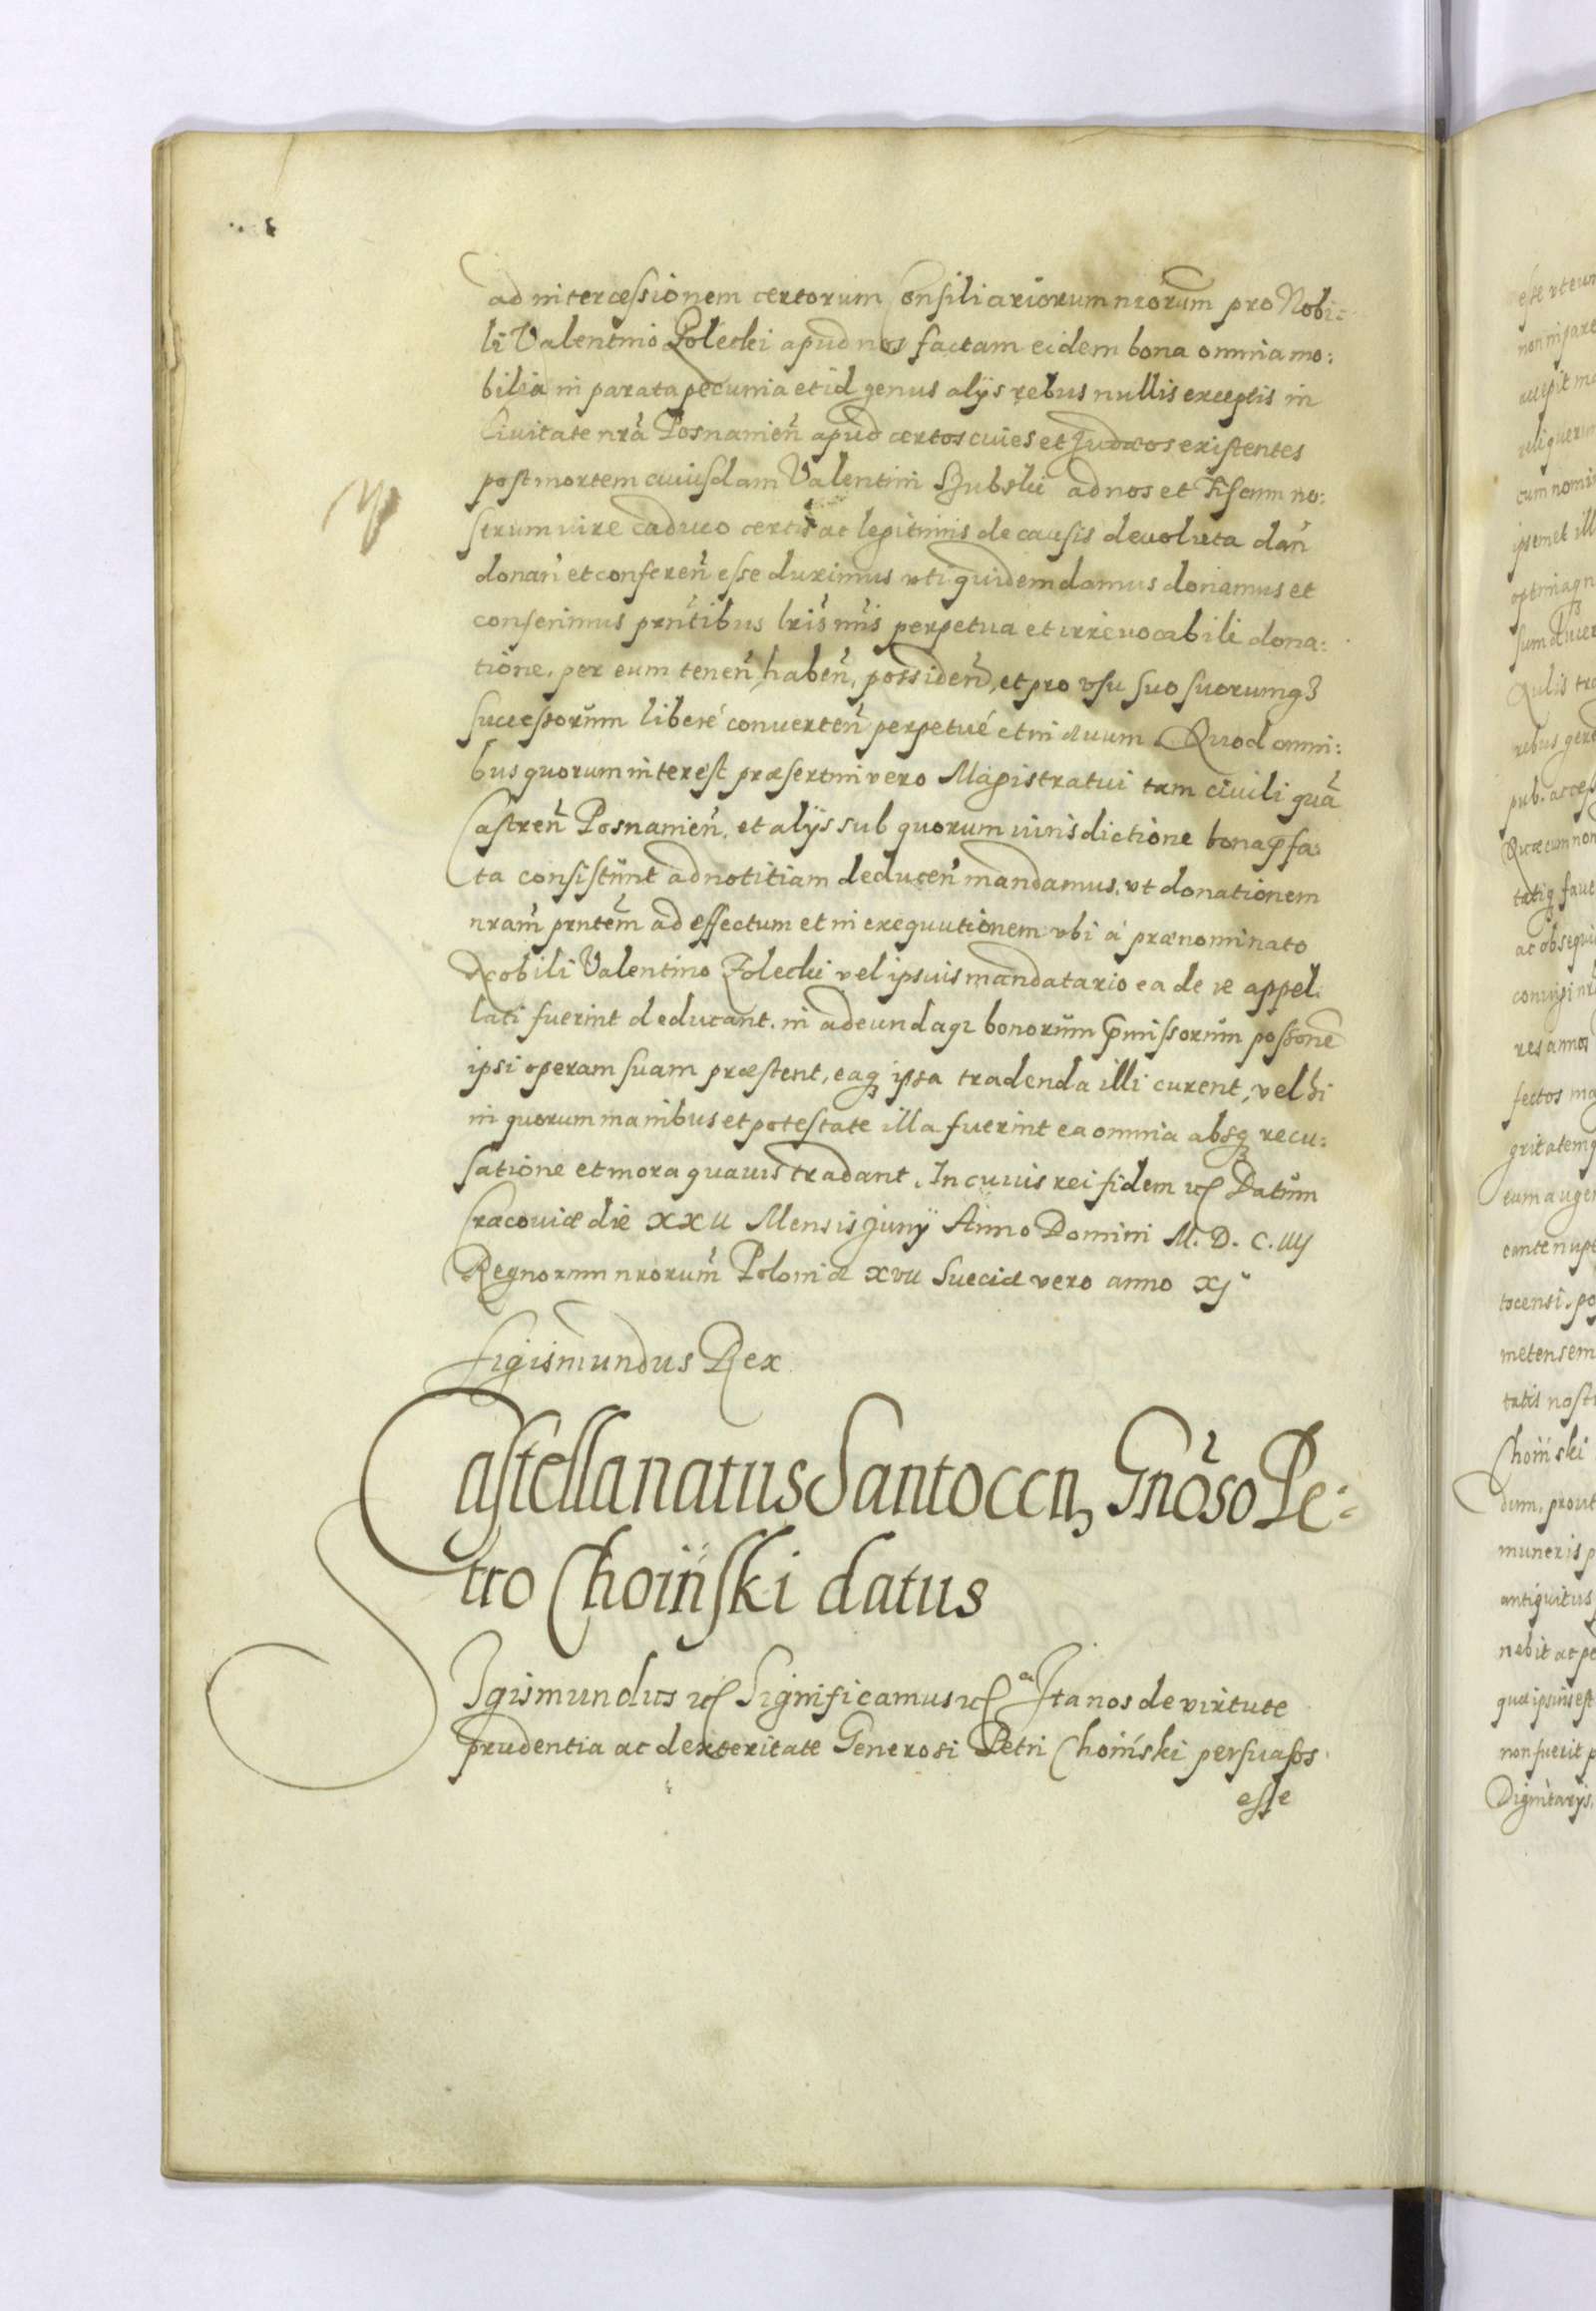 ad intercessionem certorum Consiliariorum nrorum pro Nobi:
li Valentino Polecki apud nos factam eidem bona omnia mo:
bilia in parata pecunia et id genus alijs rebus nullis exceptis in
Ciuitate nrã Posnanien̄ apud certos ciues et Judæos existentes
post mortem cuiusdam Valentini ad nos et Fiscum no:
strum iure caduco certis ac legitimis de causis deuoluta dan̄
donan̄ et conferen̄ esse duximus vti quidem damus donamus et
conferimus prntibus lris nris perpetua et irreuocabili dona:
tione, per eum tenen̄, haben̄, possiden̄d, et pro vsu suo suorumqꝫ
successorum liberé conuerten̄ perpetué et in æuum. Quod omni:
bus quorum interest præsertim vero Magistratui tam ciuili quã
Castren̄ Posnanien̄, et alijs sub quorum iurisdictione bona p̄fa:
ta consistunt ad notitiam deducen̄ mandamus, vt donationem
nram̄ prntem̄ ad effectum et in exequutionem vbi á prænominato
Nobili Valentino Polecki vel ipsius mandatario ea de re appel:
lati fuerint deducant, in adeundaqꝫ bonorum p̄missorum possone
ipsi operam suam præstent, eaqꝫ ipsa tradenda illi curent, vel hi
in quorum manibus et potestate illa fuerint ea omnia absqꝫ recu:
satione et mora quauis tradant. In cuius rei fidem etc Datum
Cracouiæ die XXII Mensis Junij Anno Domini M. D. C. IIIJ
Regnorum nrorum̄ Poloniæ XVII Sueciæ vero anno XJ
Sigismundus Rex
Castellanatus Santoccn, Gnōso Pe:
tro Choiński datus
Sigismundus etc Significamus etc Ita nos de virtute
prudentia ac dexteritate Generosi Petri Choiński persuasos
esse